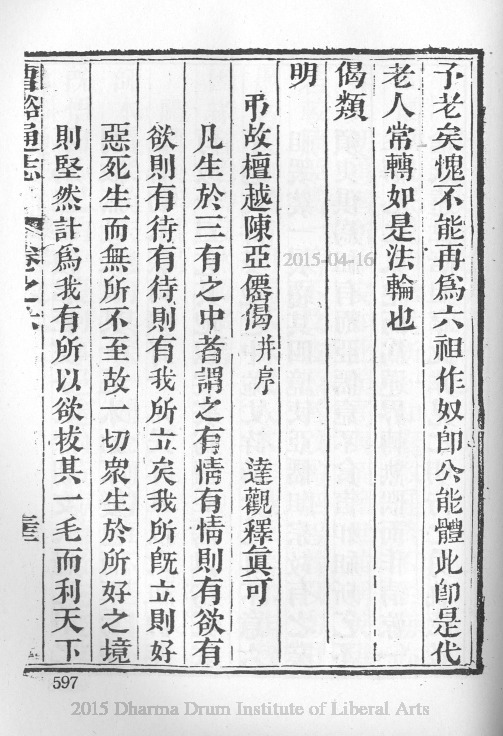 予老矣愧不能再爲六祖作奴郎公能體此郎是代
老人常轉如是法輪也
偈類
明
弔故檀越陳亞僊偈并序 達觀釋眞可
凡生於三有之中者謂之有情有情則有欲有
欲則有待有待則有我所立矣我所旣立則好
惡死生而無所不至故一切衆生於所好之境
則堅然計爲我有所以欲拔其一毛而利天下
通志 卷之六
2015-04-16
597
2015 Dharma Drum Institute of Liberal Arts